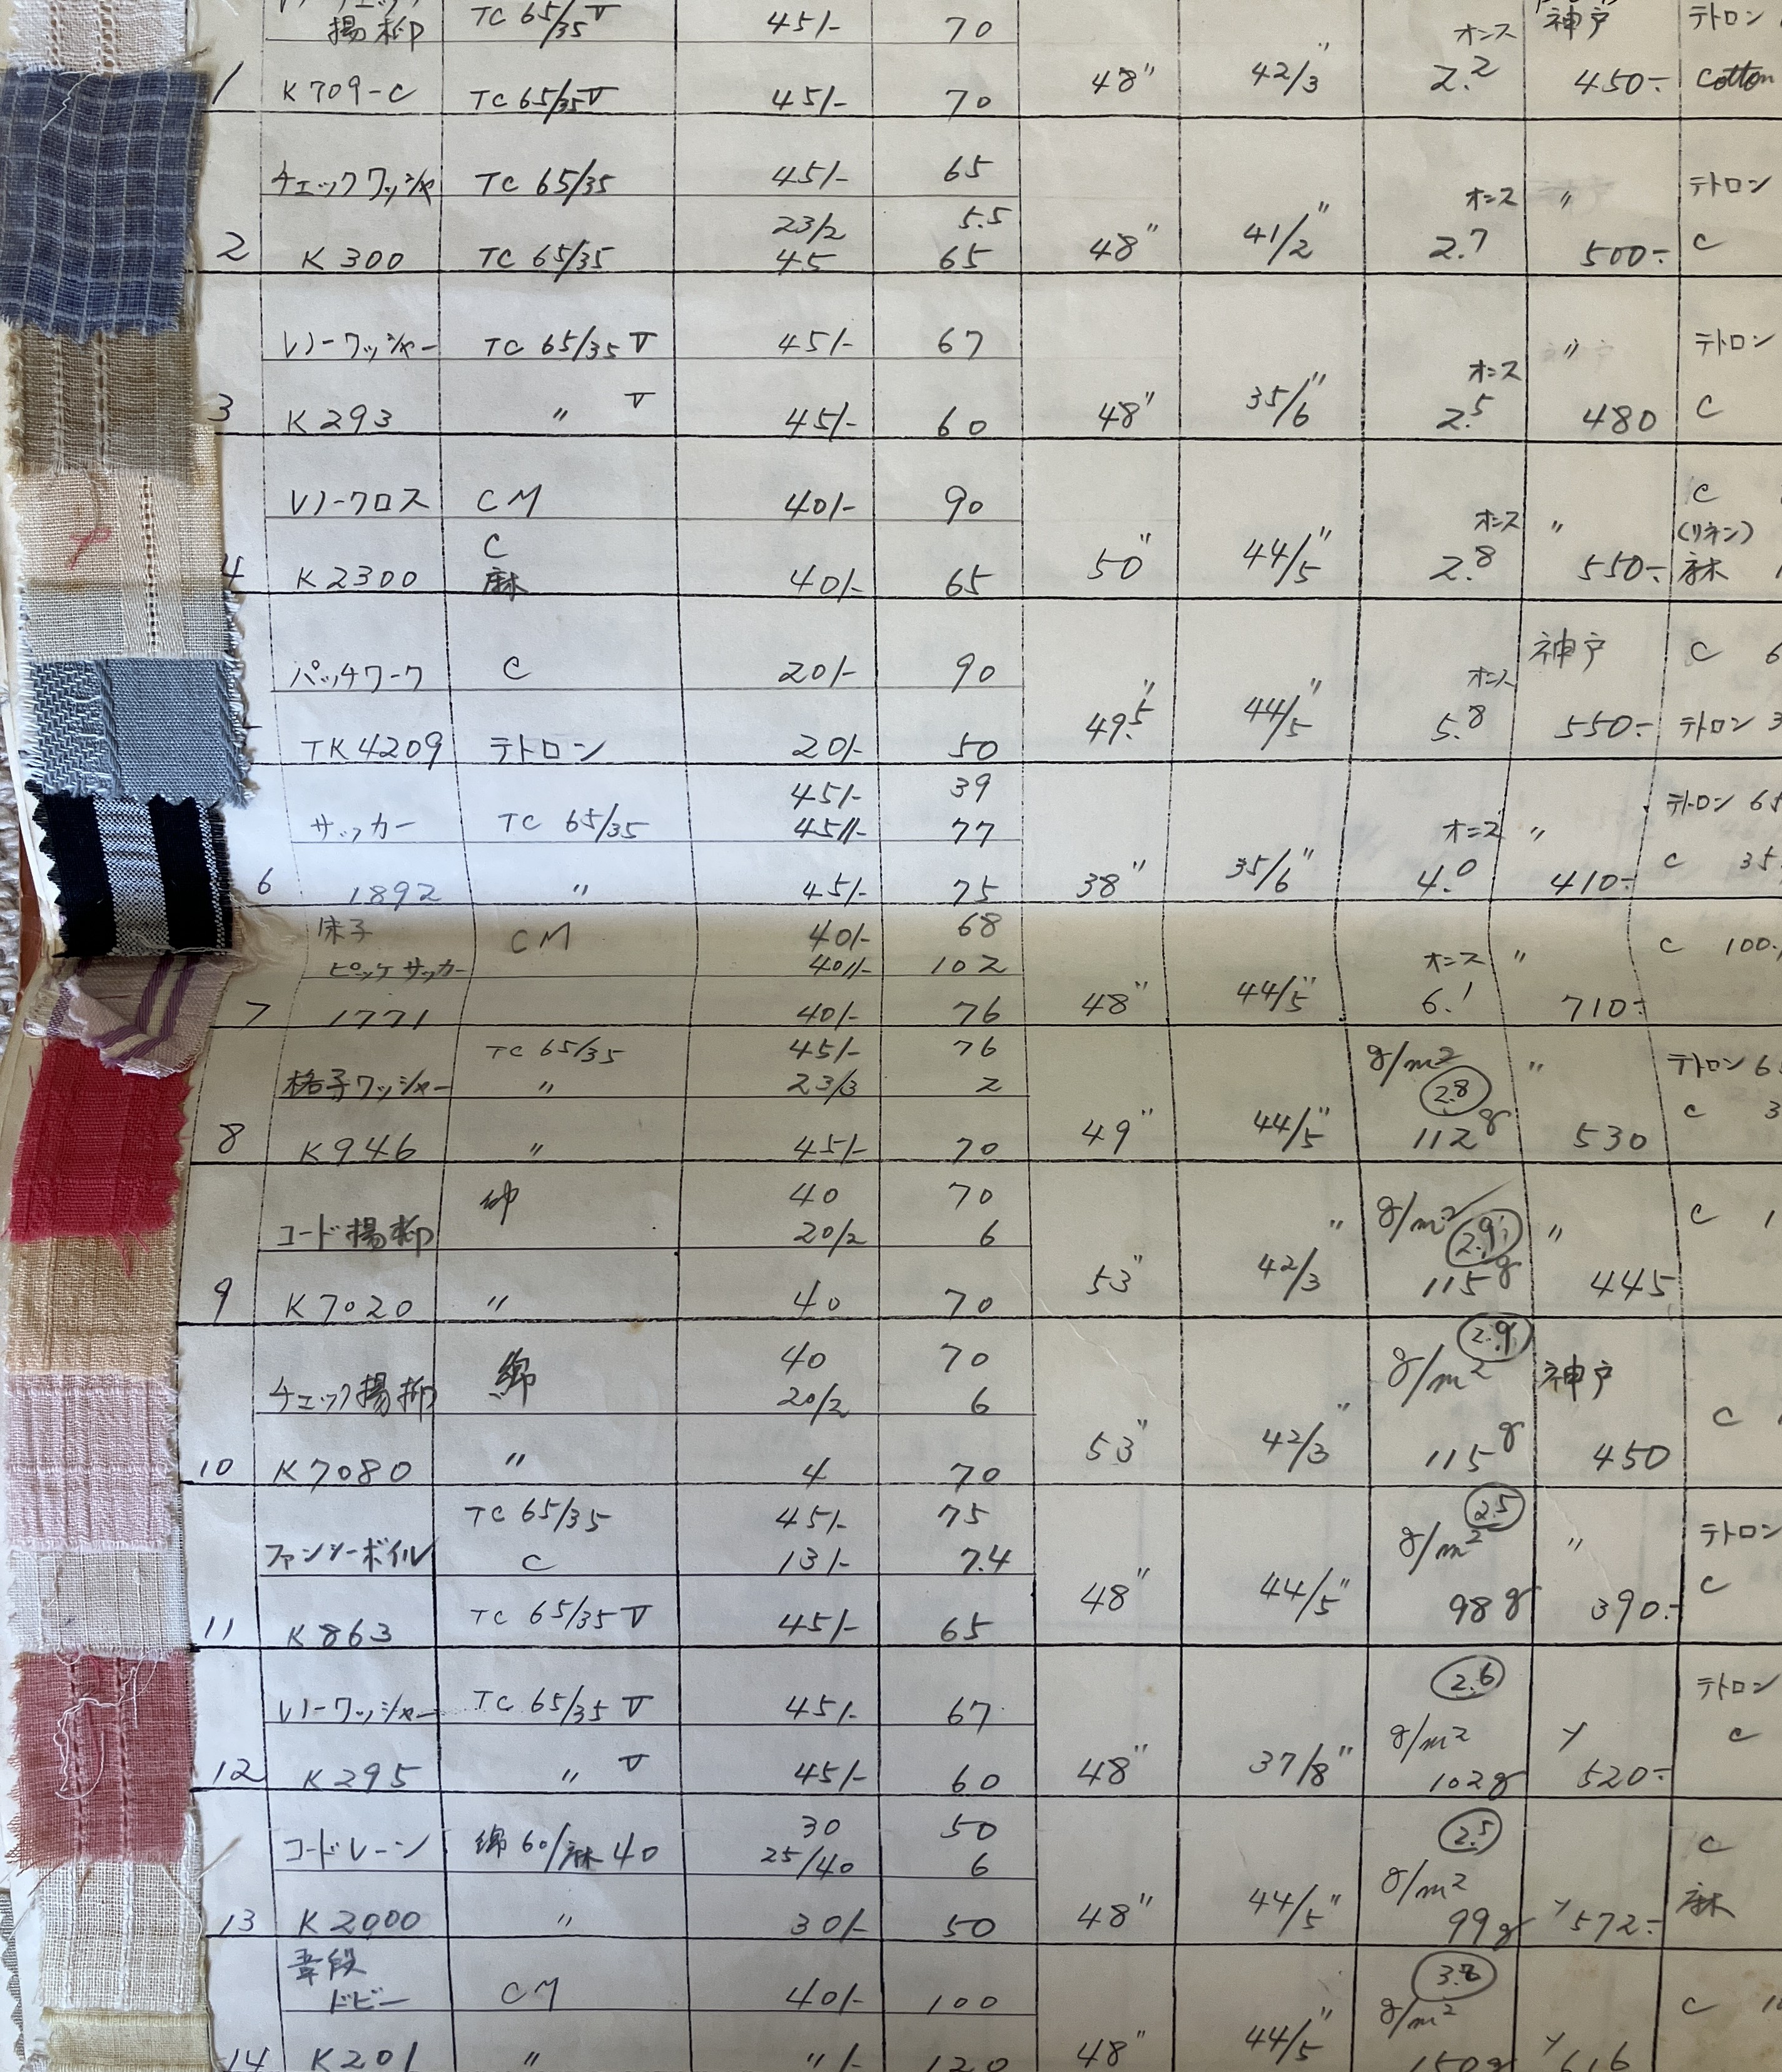 揚柳 TC 65/35 T 45/- 70 オンス 神戸 テトロン
1 K709-C TC 65/35 T 45/- 70 48" 42/3" 2.2 450- Cotton
チェックワッシャ TC 65/35 45/- 65 オンス 〃 テトロン
23/2 5.5
2 K300 TC 65/35 45 65 48" 41/2" 2.7 500- C
レノーワッシャー TC 65/35 T 45/- 67 オンス 〃 テトロン
3 K293 〃 T 45/- 60 48" 35/6" 2.5 480 C
レノークロス CM 40/- 90 オンス 〃 C
C (リネン)
4 K2300 麻 40/- 65 50" 44/5" 2.8 550- 麻
パッチワーク C 20/- 90 オンス 神戸 C 6
TK4209 テトロン 20/- 50 49.5" 44/5" 5.8 550- テトロン 3
45/- 39 テトロン 65
サッカー TC 65/35 45// 77 オンス 〃
6 1892 〃 45/- 75 38" 35/6" 4.0 410- C 35
CM 40/- 68 C 100
ピッケサッカー 40// 102 オンス 〃
7 1771 40/- 76 48" 44/5" 6.1 710-
TC 65/35 45/- 76 g/m² 〃 テトロン 6
格子ワッシャー 〃 23/3 2 2.8 C 3
8 K946 〃 45/- 70 49" 44/5" 112g 530
40 70 g/m² C 1
コード揚柳 20/2 6 2.9 〃
9 K7020 〃 40 70 53" 42/3" 115g 445
綿 40 70 2.9 g/m² 神戸
チェック揚柳 20/2 6 C
10 K7080 〃 4 70 53" 42/3" 115g 450
TC 65/35 45/- 75 2.5 テトロン
ファンシーボイル C 13/- 7.4 g/m² 〃 C
11 K863 TC 65/35 T 45/- 65 48" 44/5" 98g 390-
レノーワッシャー TC 65/35 T 45/- 67 2.6 テトロン
g/m² C
12 K295 〃 T 45/- 60 48" 37/8" 102g Y 520-
30 50 2.5 C
コードレーン 綿60/麻40 25/40 6 g/m²
13 K2000 〃 30/- 50 48" 44/5" 99g Y 572- 麻
ドビー CM 40/- 100 g/m² C 10
14 K201 〃 〃/- 120 48" 44/5" 150g Y 616